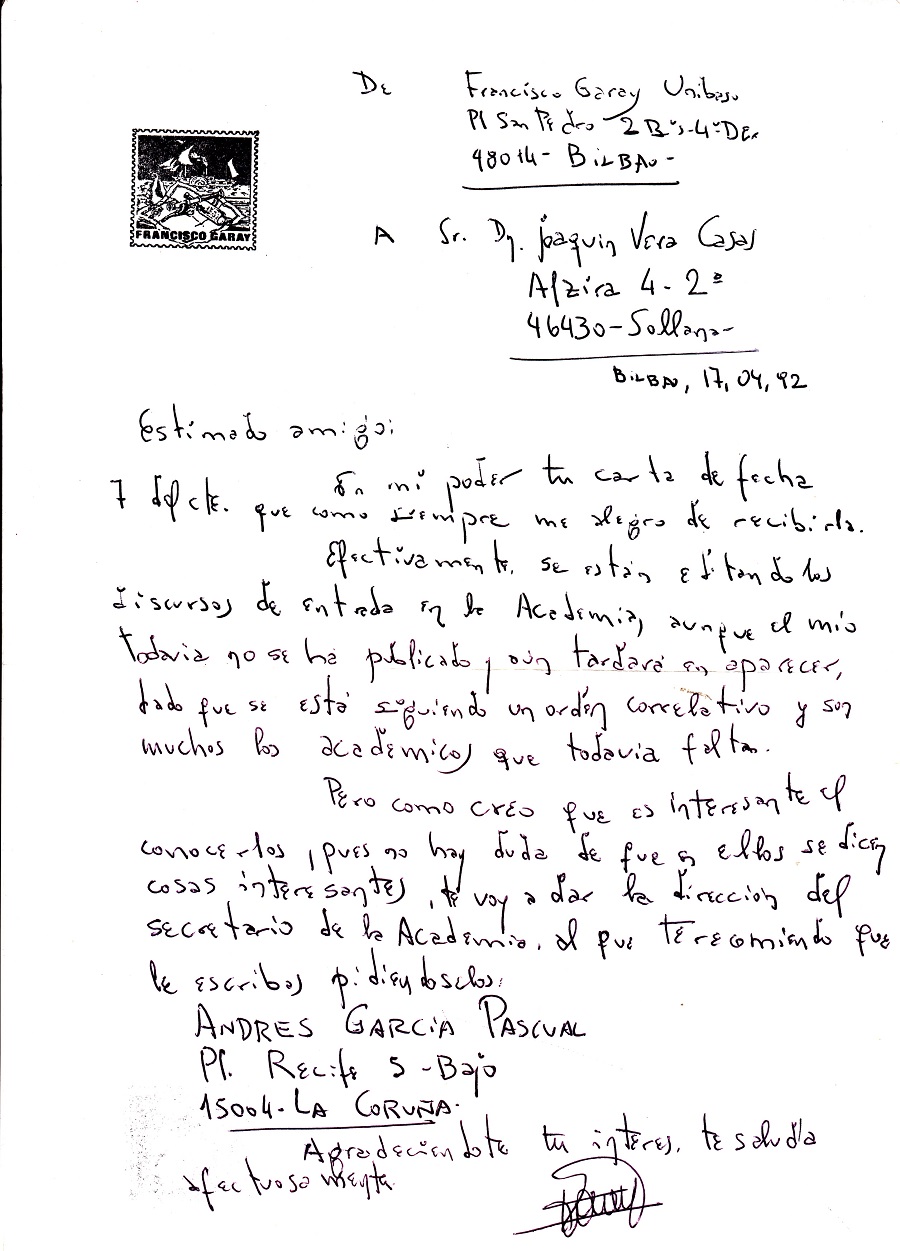 De Francisco Garay Unibaso
Pl San Pedro 2 Bis-4º Der
48014-BILBAO-
FRANCISCO GARAY
A Sr. Dn. Joaquin Vera Casas
Alzira 4-2º
46430-Sollana-
BILBAO, 17, 04, 92
Estimado amigo:
En mi poder tu carta de fecha
7 del cte. que como siempre me alegro de recibirla.
Efectivamente, se están editando los
discursos de entrada en la Academia, aunque el mio
todavia no se ha publicado y aún tardará en aparecer,
dado que se está siguiendo un orden correlativo y son
muchos los académicos que todavia faltan.
Pero como creo que es interesante el
conocerlos, pues no hay duda de que en ellos se dicen
cosas interesantes, te voy a dar la direccion del
secretario de la Academia, al que te recomiendo que
le escribas pidiendoselos:
ANDRES GARCIA PASCUAL
Pl. Recife 5-Bajo
15004-LA CORUÑA-
Agradeciendote tu interes, te saluda
afectuosamente